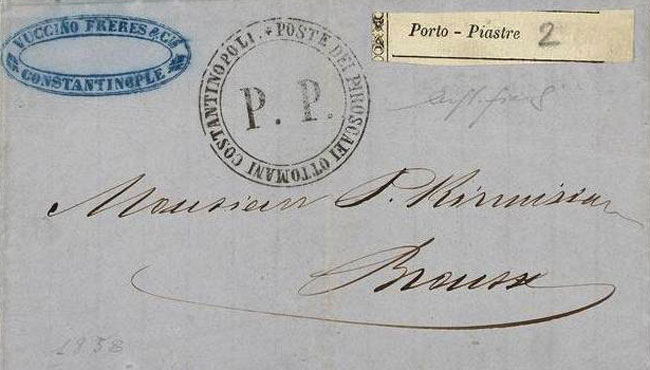 VUCCINO FRERES & Cie
CONSTANTINOPLE
POSTE DEI PIROSCAFI OTTOMANI COSTANTINOPOLI
P. P.
Porto - Piastre 2
Monsieur P. Kirmisian
Brousse
1858